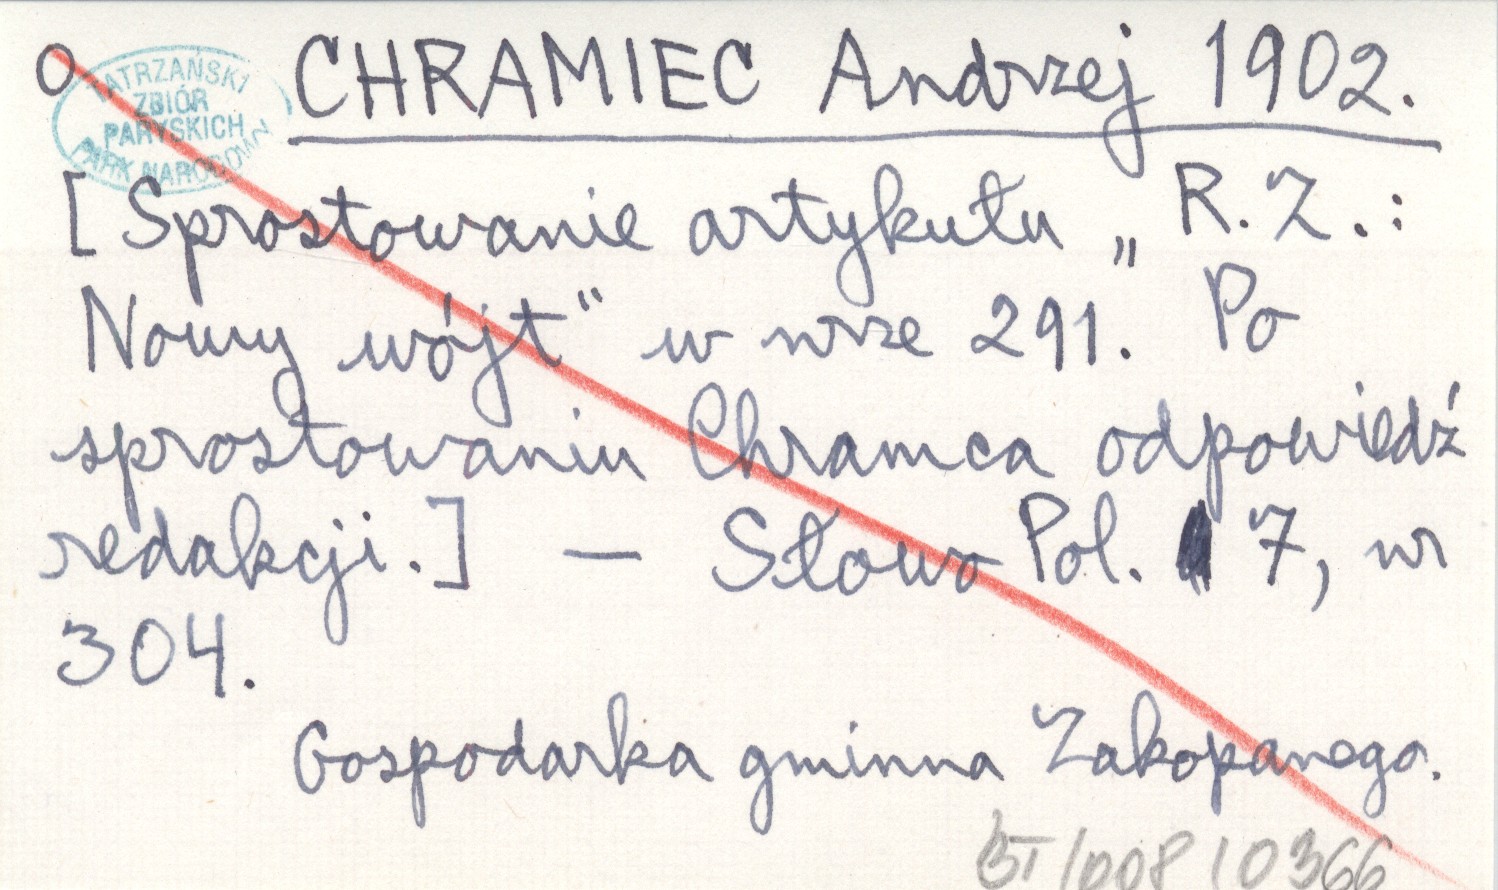 O
TATRZAŃSKI
ZBIÓR
PARYSKICH
PARK NARODOWY
CHRAMIEC Andrzej 1902.
[Sprostowanie artykułu „R.Z.:
Nowy wójt“ w nrze 291. Po
sprostowaniu Chramca odpowiedź
redakcji.] — Słowo Pol. 7, nr
304.
Gospodarka gminna Zakopanego.
/008/0366